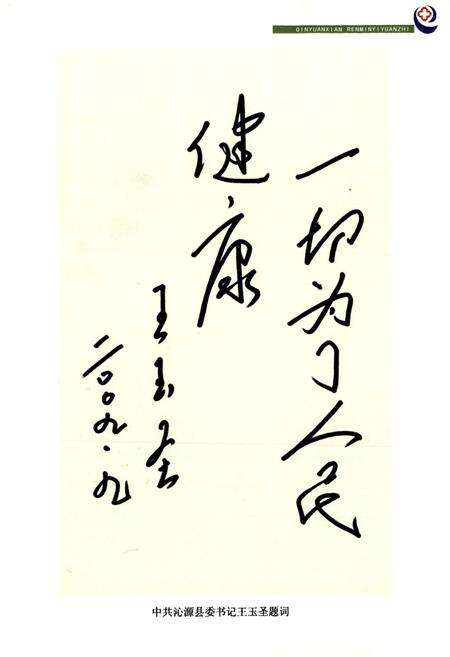 QINYUANXIAN RENMINYIYUANZHI
一切为了人民
健康
王玉圣
二〇〇九.九
中共沁源县委书记王玉圣题词